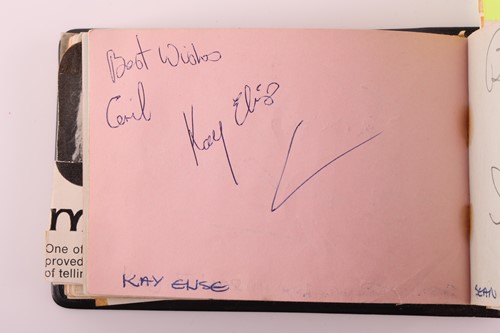 Best Wishes
Cecil
Kay
KAY ENSE
m
One of
proved
of tellin
SEAN